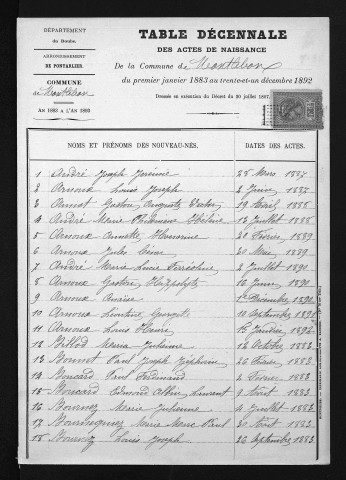 DÉPARTEMENT
du Doubs.
ARRONDISSEMENT
DE PONTARLIER.
COMMUNE
de Montlebon
AN 1883 A L'AN 1893
TABLE DÉCENNALE
DES ACTES DE NAISSANCE
De la Commune de Montlebon
du premier janvier 1883 au trente-et-un décembre 1892
Dressée en exécution du Décret du 20 juillet 1807.
NOMS ET PRÉNOMS DES NOUVEAU-NÉS. DATES DES ACTES.
1 André Joseph 28 Mars 1887
2 Arnoux Louis Joseph 2 Juin 1887
3 Gaston Auguste 19 Avril 1888
4 André Marie Hélène 12 Juillet 1888
5 Arnoux Annette Honorine 20 Février 1889
6 Arnoux Jules 30 Mai 1889
7 André Maria Lucie 2 Juillet 1890
8 Arnoux Gaston Hippolyte 10 Juin 1890
9 Arnoux 1er Décembre 1890
10 Arnoux 10 Septembre 1891
11 Arnoux Louis Henri 1892
12 Billod Maria Julienne 14 Octobre 1883
13 Bonnet Paul Joseph 26 Février 1883
14 Boucard Paul Ferdinand 2 Février 1883
15 Boucard Edmond Albin Laurent 9 Août 1883
16 Marie Julienne 4 Juillet 1883
17 Marie Paul 30 Août 1883
18 Louis Joseph 26 Septembre 1883